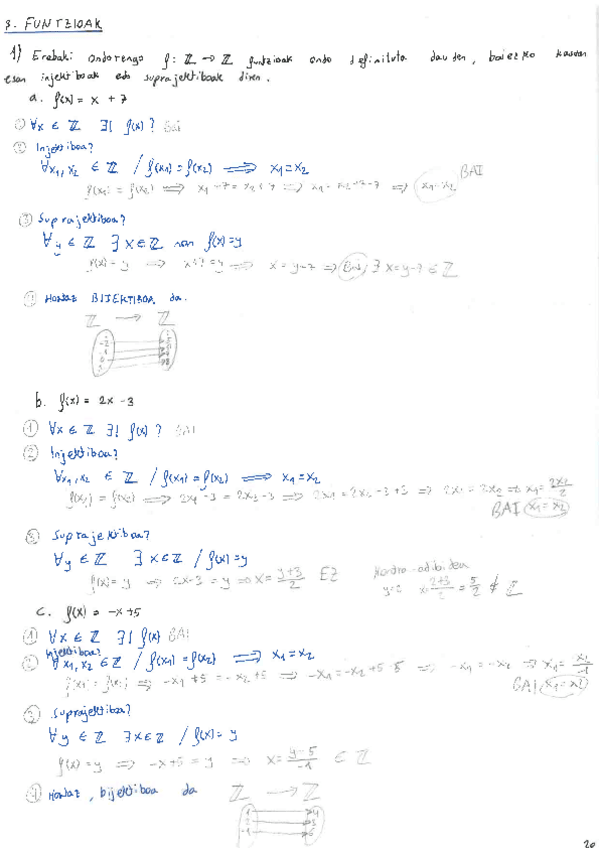 3. FUNTZIOAK
1) Erabaki ondorengo f: ℤ → ℤ funtzioak ondo definituta dauden, baiezko kasuan
esan injektiboak edo suprajektiboak diren.
a. f(x) = x + 7
① ∀x ∈ ℤ ∃! f(x) ? BAI
② Injektiboa?
∀x₁, x₂ ∈ ℤ / f(x₁) = f(x₂) ⟹ x₁ = x₂
f(x₁) = f(x₂) ⟹ x₁ + 7 = x₂ + 7 ⟹ x₁ = x₂ + 7 - 7 ⟹ x₁ = x₂ BAI
③ Suprajektiboa?
∀y ∈ ℤ ∃ x ∈ ℤ non f(x) = y
f(x) = y ⟹ x + 7 = y ⟹ x = y - 7 ⟹ Bai, ∃ x = y - 7 ∈ ℤ
④ Hortaz BIJEKTIBOA da.
ℤ → ℤ
b. f(x) = 2x - 3
① ∀x ∈ ℤ ∃! f(x) ? BAI
② Injektiboa?
∀x₁, x₂ ∈ ℤ / f(x₁) = f(x₂) ⟹ x₁ = x₂
f(x₁) = f(x₂) ⟹ 2x₁ - 3 = 2x₂ - 3 ⟹ 2x₁ = 2x₂ - 3 + 3 ⟹ 2x₁ = 2x₂ ⟹ x₁ = 2x₂/2
BAI x₁ = x₂
③ Suprajektiboa?
∀y ∈ ℤ ∃ x ∈ ℤ / f(x) = y
f(x) = y ⟹ 2x - 3 = y ⟹ x = y+3/2 EZ
Kontra-adibidea
y=2 x= 2+3/2 = 5/2 ∉ ℤ
c. f(x) = -x + 5
① ∀x ∈ ℤ ∃! f(x) BAI
Injektiboa?
② ∀x₁, x₂ ∈ ℤ / f(x₁) = f(x₂) ⟹ x₁ = x₂
f(x₁) = f(x₂) ⟹ -x₁ + 5 = -x₂ + 5 ⟹ -x₁ = -x₂ + 5 - 5 ⟹ -x₁ = -x₂ ⟹ x₁ = x₂/-1
BAI x₁ = x₂
③ Suprajektiboa?
∀y ∈ ℤ ∃ x ∈ ℤ / f(x) = y
f(x) = y ⟹ -x + 5 = y ⟹ x = y-5/-1 ∈ ℤ
④ Hortaz, bijektiboa da ℤ → ℤ
1 4
2 3
-1 6
20